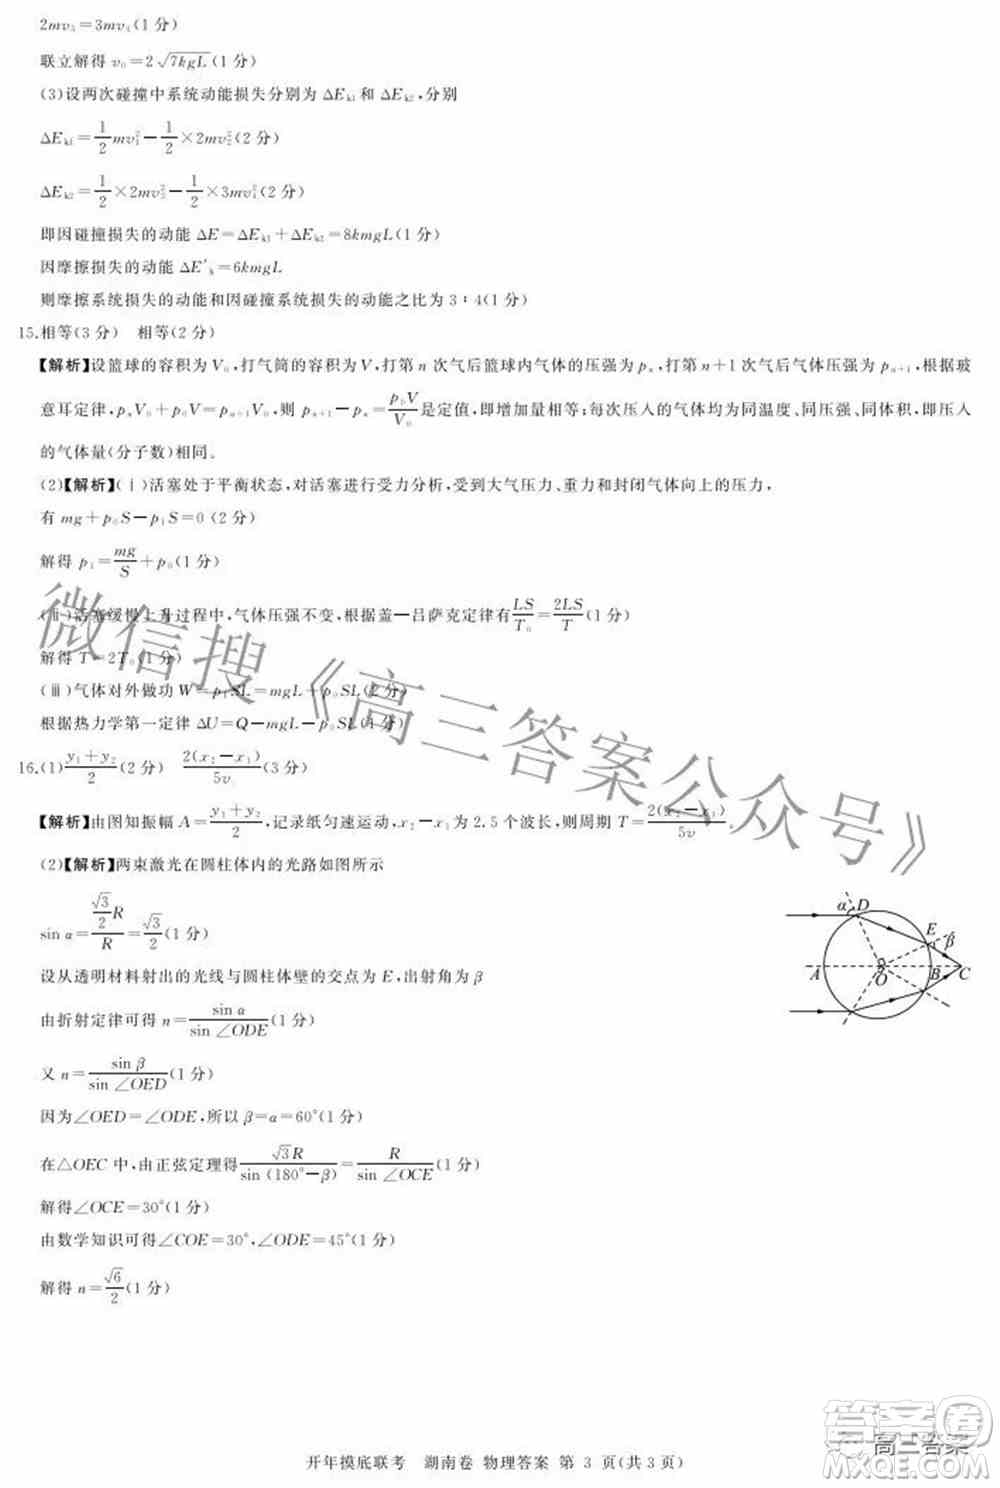 2mv₃=3mv₄(1分)
联立解得 v₀=2√(7kgL)(1分)
(3)设两次碰撞中系统动能损失分别为 ΔEₖ₁ 和 ΔEₖ₂,分别
ΔEₖ₁=1/2mv₁²-1/2×2mv₂²(2分)
ΔEₖ₂=1/2×2mv₃²-1/2×3mv₄²(2分)
即因碰撞损失的动能 ΔE=ΔEₖ₁+ΔEₖ₂=8kmgL(1分)
因摩擦损失的动能 ΔE'ₖ=6kmgL
则摩擦系统损失的动能和因碰撞系统损失的动能之比为 3∶4(1分)
15.相等(3分) 相等(2分)
【解析】设篮球的容积为 V₀,打气筒的容积为 V,打第 n 次气后篮球内气体的压强为 pₙ,打第 n+1 次气后气体压强为 pₙ₊₁,根据玻
意耳定律,pₙV₀+p₀V=pₙ₊₁V₀,则 pₙ₊₁-pₙ=p₀V/V₀是定值,即增加量相等;每次压入的气体均为同温度、同压强、同体积,即压入
的气体量(分子数)相同。
(2)【解析】(ⅰ)活塞处于平衡状态,对活塞进行受力分析,受到大气压力、重力和封闭气体向上的压力,
有 mg+p₀S-p₁S=0(2分)
解得 p₁=mg/S+p₀(1分)
(ⅱ)活塞缓慢上升过程中,气体压强不变,根据盖—吕萨克定律有LS/T₀=2LS/T(1分)
解得 T=2T₀(1分)
(ⅲ)气体对外做功 W=p₁SL=mgL+p₀SL(2分)
根据热力学第一定律 ΔU=Q-mgL-p₀SL(1分)
16.(1)(y₁+y₂)/2(2分) 2(x₂-x₁)/5v(3分)
【解析】由图知振幅 A=(y₁+y₂)/2,记录纸匀速运动,x₂-x₁为 2.5 个波长,则周期 T=2(x₂-x₁)/5v。
(2)【解析】两束激光在圆柱体内的光路如图所示
sin α=(√3/2 R)/R=√3/2(1分)
设从透明材料射出的光线与圆柱体壁的交点为 E,出射角为 β
由折射定律可得 n=sin α/sin∠ODE(1分)
又 n=sin β/sin∠OED(1分)
因为∠OED=∠ODE,所以 β=α=60°(1分)
在△OEC 中,由正弦定理得√3R/sin(180°-β)=R/sin∠OCE(1分)
解得∠OCE=30°(1分)
由数学知识可得∠COE=30°,∠ODE=45°(1分)
解得 n=√6/2(1分)
α D
E
β
A O B C
微信搜《高三答案公众号》
开年摸底联考 湖南卷 物理答案 第 3 页(共3页)
答案卷
高三答案